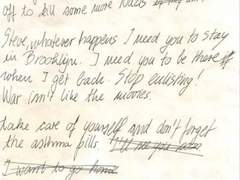 off to kill some more Nazis
Steve, whatever happens I need you to stay
in Brooklyn. I need you to be there
when I get back. Stop enlisting!
War isn't like the movies.
take care of yourself and don't forget
the asthma pills. I'll see you
I want to go home